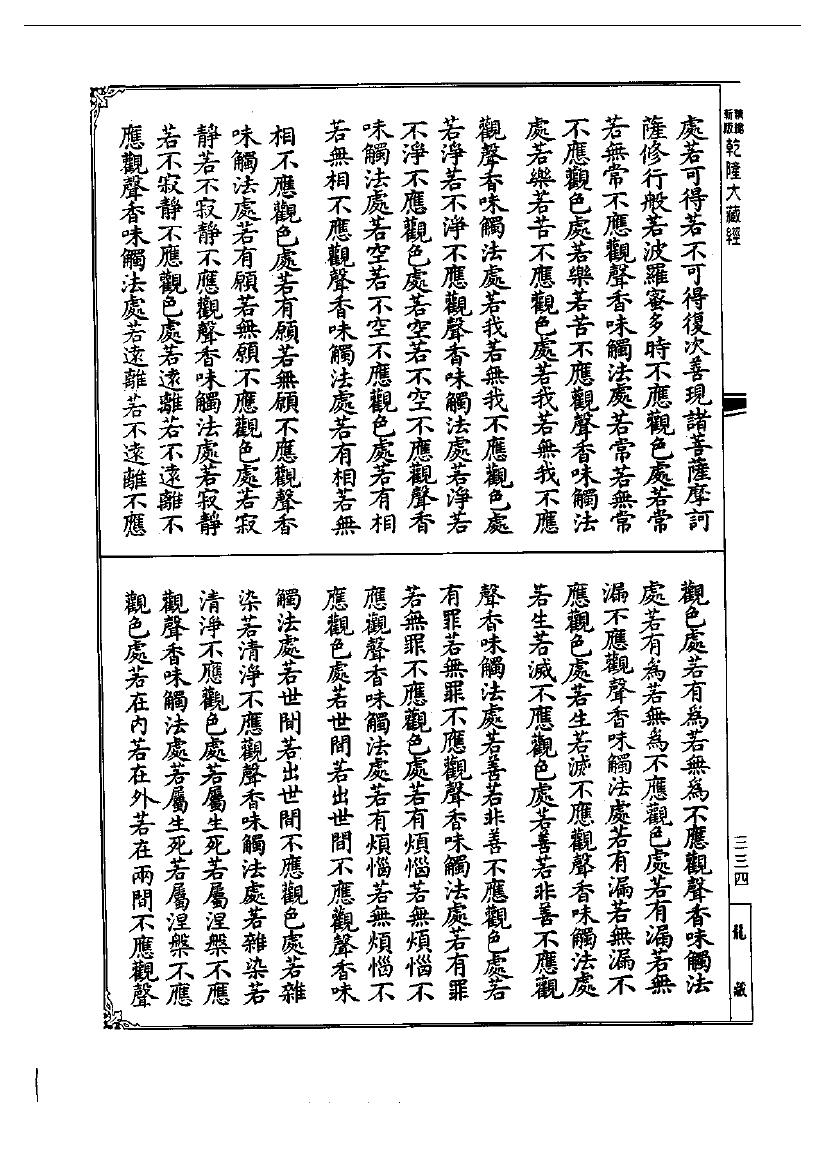 新版
乾隆大藏經
處若可得若不可得復次善現諸菩薩摩訶
薩修行般若波羅蜜多時不應觀色處若常
若無常不應觀聲香味觸法處若常若無常
不應觀色處若樂若苦不應觀聲香味觸法
處若樂若苦不應觀色處若我若無我不應
觀聲香味觸法處若我若無我不應觀色處
若淨若不淨不應觀聲香味觸法處若淨若
不淨不應觀色處若空若不空不應觀聲香
味觸法處若空若不空不應觀色處若有相
若無相不應觀聲香味觸法處若有相若無
相不應觀色處若有願若無願不應觀聲香
味觸法處若有願若無願不應觀色處若寂
靜若不寂靜不應觀聲香味觸法處若寂靜
若不寂靜不應觀色處若遠離若不遠離不
應觀聲香味觸法處若遠離若不遠離不應
觀色處若有為若無為不應觀聲香味觸法
處若有為若無為不應觀色處若有漏若無
漏不應觀聲香味觸法處若有漏若無漏不
應觀色處若生若滅不應觀聲香味觸法處
若生若滅不應觀色處若善若非善不應觀
聲香味觸法處若善若非善不應觀色處若
有罪若無罪不應觀聲香味觸法處若有罪
若無罪不應觀色處若有煩惱若無煩惱不
應觀聲香味觸法處若有煩惱若無煩惱不
應觀色處若世間若出世間不應觀聲香味
觸法處若世間若出世間不應觀色處若雜
染若清淨不應觀聲香味觸法處若雜染若
清淨不應觀色處若屬生死若屬涅槃不應
觀聲香味觸法處若屬生死若屬涅槃不應
觀色處若在內若在外若在兩間不應觀聲
三三四
龍藏